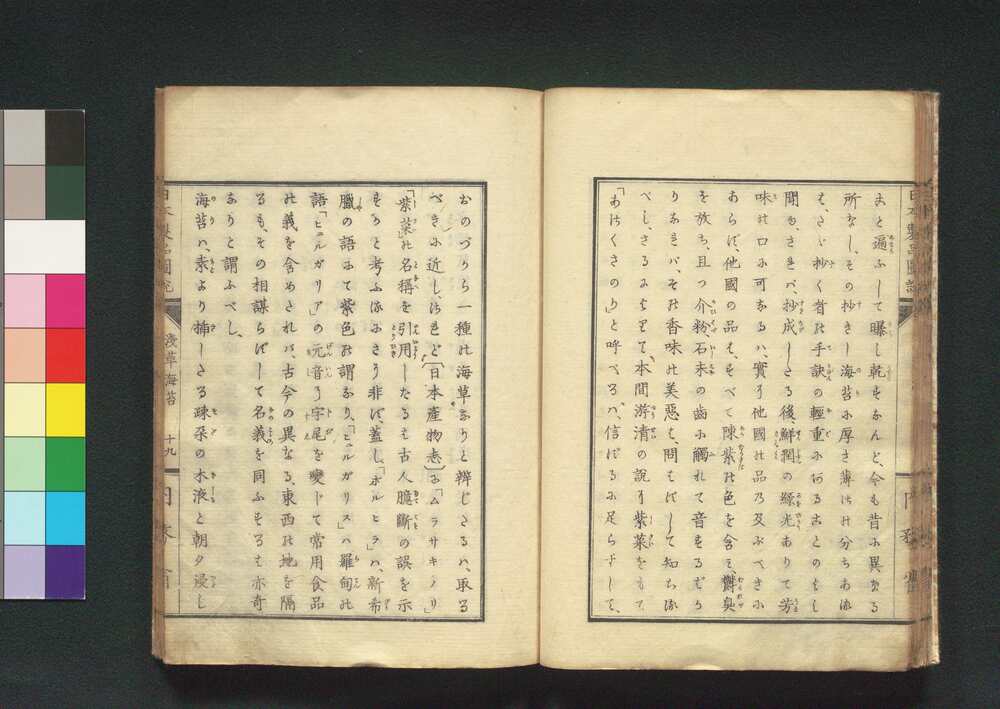 まと遍ふして曝し乾すなんど、今も昔ふ異なる
所なし、その抄きし海苔ふ厚き薄けの分ちある
は、さゞ抄く者の手訣の輕重ふあることのもし
聞ゆ、されバ、抄成しさる後、鮮潤の綠光ありて芳
味の口ふ可なるハ、實に他國の品の及ぶべきふ
あらず、他國の品は、すべて陳紫の色を含み、鬱臭
を放ち、且つ介粉石末の齒ふ觸れて音するばか
りなれバ、その香味の美惡は、問はずして知らる
べし、さるにても、本間游清の説に紫菜をもて、
「あはくさのり」と呼べるハ、信ずるふ足らずして、
おのづから一種の海草なりと辨じさるハ、取る
べきふ近し、されど〔日本産物志〕ふ「ムラサキノリ」
「紫菜」の名稱を引用したるは古人臆斷の誤を示
すると考ふるふさり非ず、蓋し、「ポルヒラ」ハ、新希
臘の語ふて紫色の謂なり、「ヒルガリス」ハ羅甸の
語「ヒルガリア」の元音に字尾を變じて常用食品
の義を含めされバ、古今の異なる、東西の地を隔
るも、その相謀らずして名義を同ふするは亦奇
なりと謂ふべし、
海苔ハ、素より揷しさる疎朶の木液と朝夕浸し
日本製品圖説
淺草海苔
十九
内務省